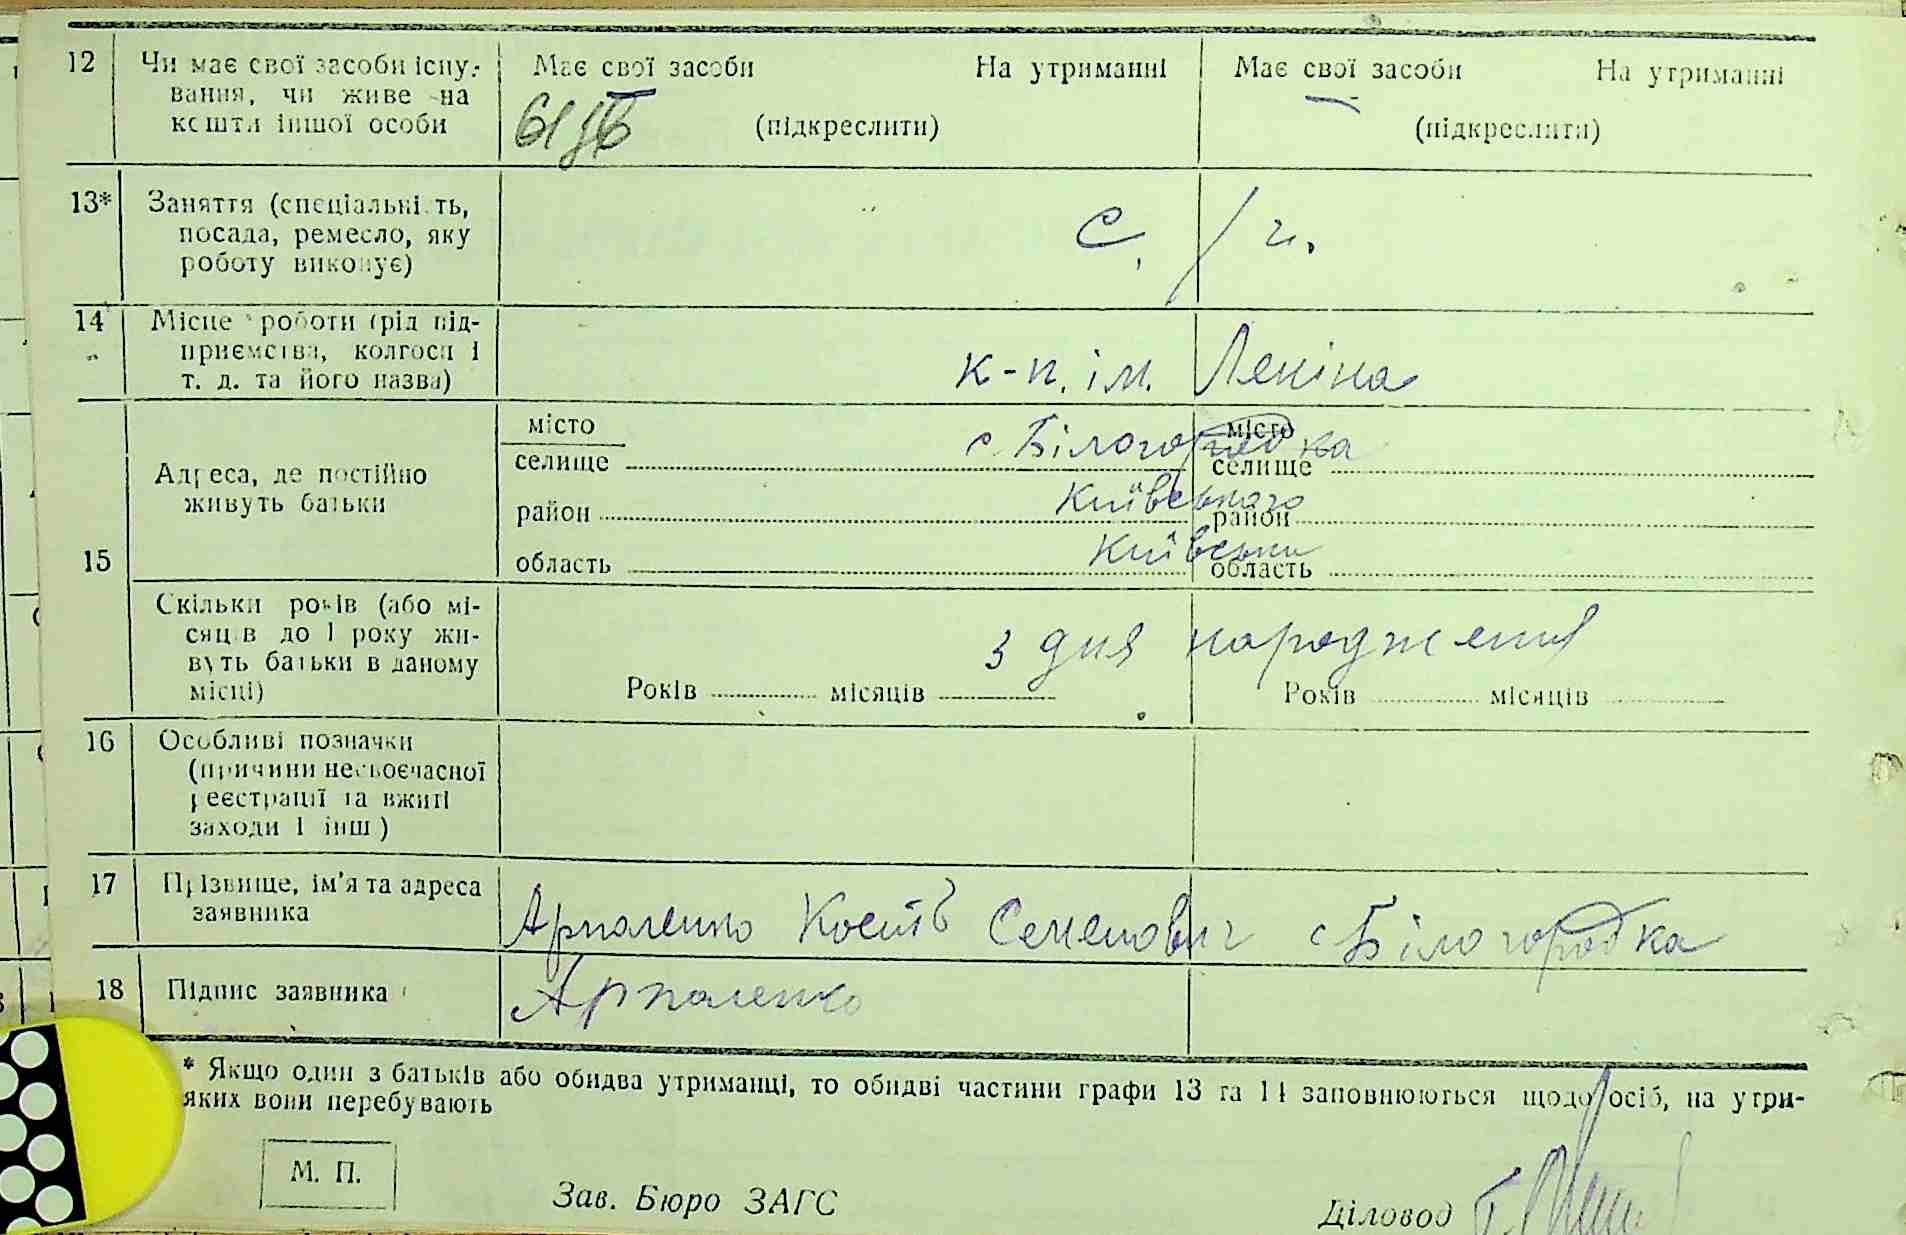 12 Чи має свої засоби існу- Має свої засоби На утриманні Має свої засоби На утриманні
вання, чи живе на
кошти іншої особи (підкреслити) (підкреслити)
13* Заняття (спеціальність,
посада, ремесло, яку с. / г.
роботу виконує)
14 Місце роботи (рід під-
приємства, колгосп і к-п. ім. Леніна
т. д. та його назва)
місто місто
с. Білогородка
селище селище
Адреса, де постійно
живуть батьки Київського
район район
15 Київськи
область область
Скільки років (або мі-
сяців до 1 року жи- з дня народження
вуть батьки в даному
місці) Років місяців Років місяців
16 Особливі позначки
(причини несвоєчасної
реєстрації та вжиті
заходи і інш)
17 Прізвище, ім'я та адреса
заявника Костів Семенович с Білогородка
18 Підпис заявника
* Якщо один з батьків або обидва утриманці, то обидві частини графи 13 та 14 заповнюються щодо осіб, на утри-
яких вони перебувають
М. П.
Зав. Бюро ЗАГС
Діловод